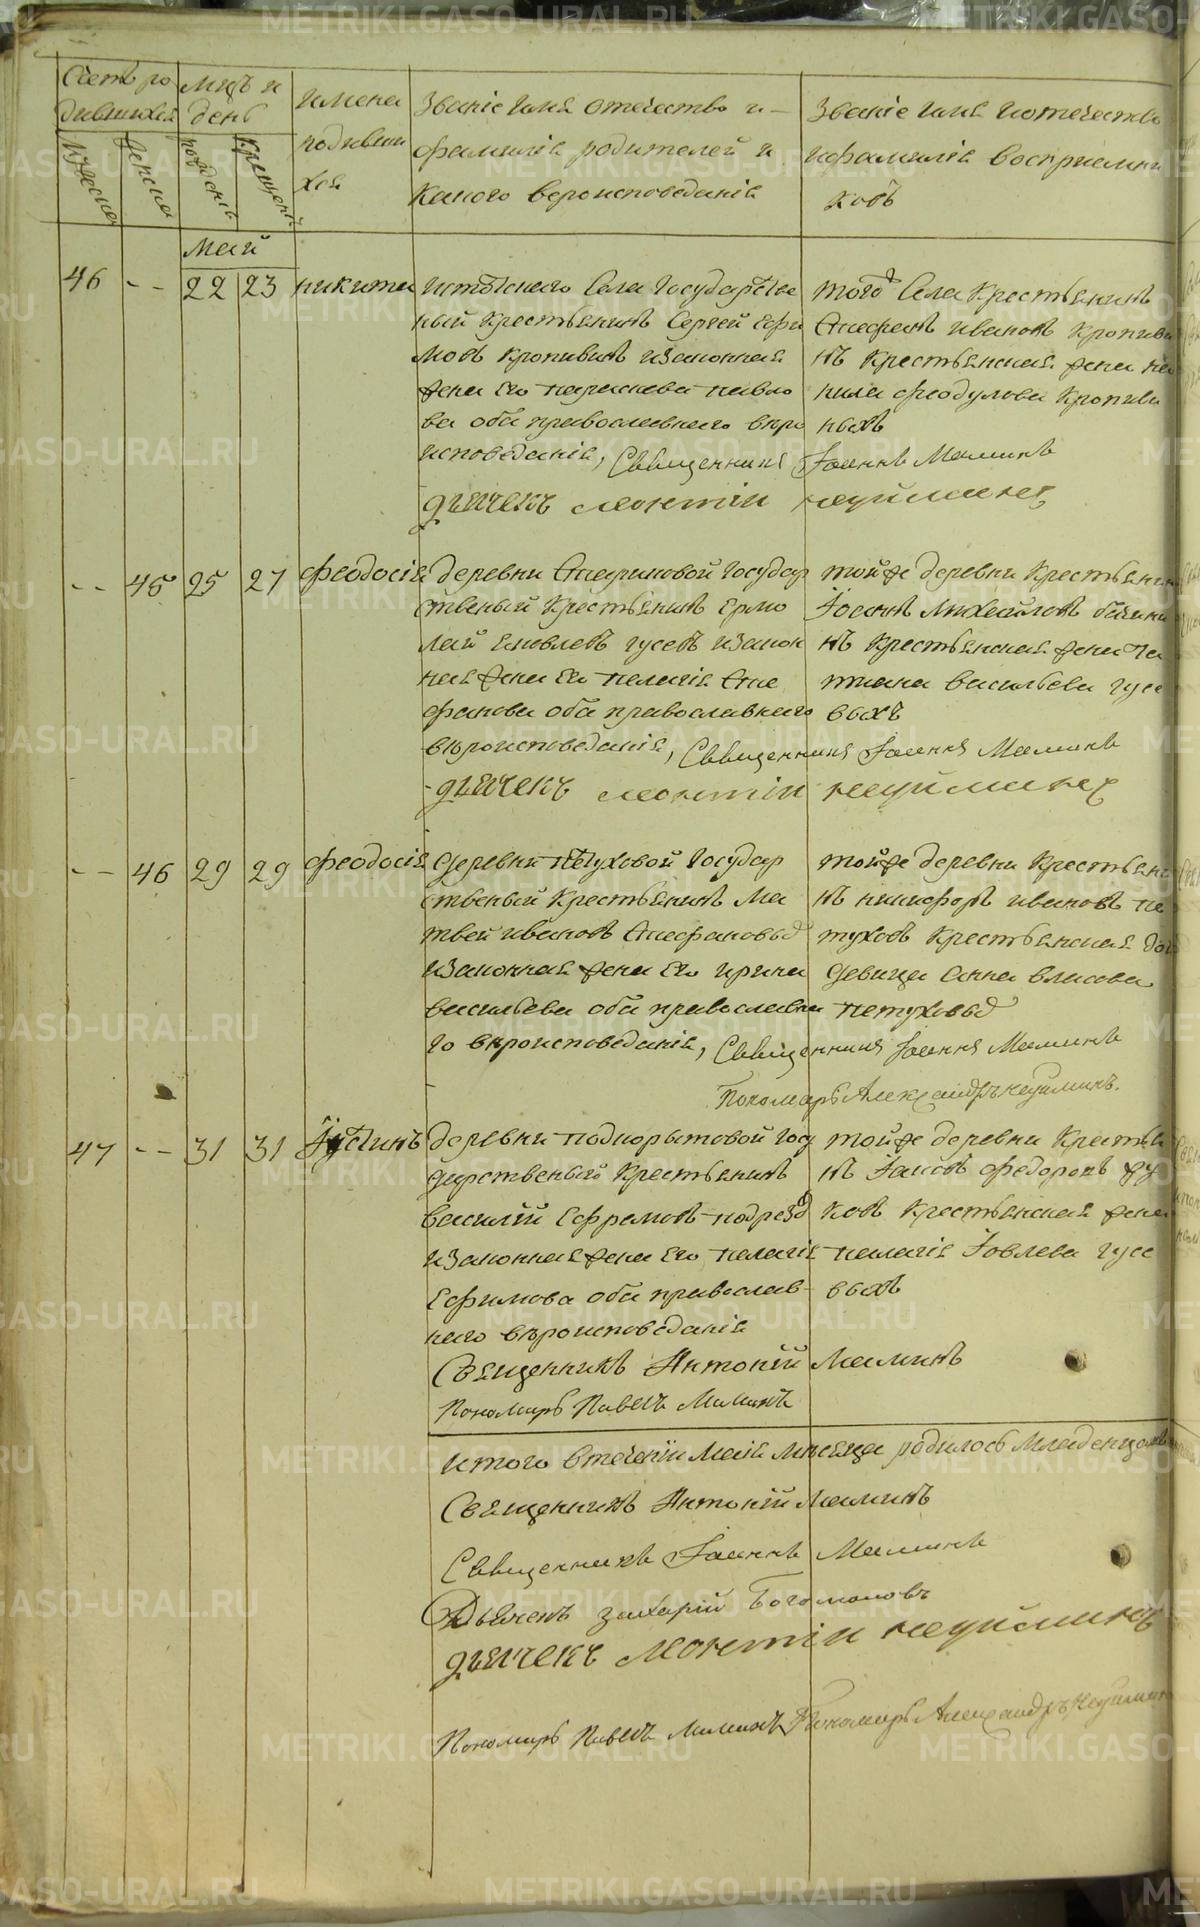 Счетъ ро
дившихся
Мцъ и
день
имена
родивши
хся
Званіе имя отечество и
фамилія родителей и
какого вероисповеданія
Званіе имя иотечество
ифамилія восприемни
ковъ
мужеска
женска
рожденія
крещенія
Май
46 -- 22 23 никита
Села Государстве
ный Крестьянинъ Сергей Ефи
мовъ Кропивинъ изаконная
жена Его параскева павло
ва оба православнаго веро
исповеданія, Священникъ Іоаннъ Маминъ
дьячекъ леонтіи кедймина
тогож Села Крестьянинъ
Стефанъ Ивановъ Кропиви
нъ Крестьянская жена не
нила феодулова Кропиви
ныхъ
-- 45 25 27 феодосія
деревни Государ
ственый Крестьянинъ Ермо
лай Яковлевъ гусевъ изакон
ная жена Его пелагія Сте
фанова оба православнаго
вероисповеданія, Священникъ Іоаннъ Маминъ
дьячекъ леонтіи кедймина
тойже деревни Крестьяни
Іоаннъ Михайловъ
нъ Крестьянская жена та
тиана васильева гусе
выхъ
-- 46 29 29 феодосія
деревни петуховой Государ
ственый Крестьянинъ Ма
твей ивановъ Стефановыд
изаконная жена Его ирина
васильева оба православна
го вероисповеданія, Священникъ Іоаннъ Маминъ
Пономарь Александръ Кедйминъ.
тойже деревни Крестьяни
нъ никифоръ ивановъ пе
туховъ Крестьянская доч
девица анна власова
петуховыд
47 -- 31 31 Іустинъ
деревни подкорытовой госу
дарственый Крестьянинъ
василій Ефремовъ подрезо
изаконная жена Его пелагія
Ефимова оба православ-
наго вероисповеданія
Священникъ Антоній Маминъ
Пономарь Павелъ Маминъ
тойже деревни Крестья
нъ федоровъ жу
ковъ Крестьянская жена
пелагія Іовлева гусе
выхъ
итого втеченіи маія месяца родилось младенцовъ
Священникъ Антоній Маминъ
Священникъ Іоаннъ Маминъ
Дьяченъ захарій Богомоловъ
дьячекъ леонтіи кедйминъ
Пономарь Павелъ Маминъ Пономарь Александръ Кедймин
METRIKI.GASO-URAL.RU